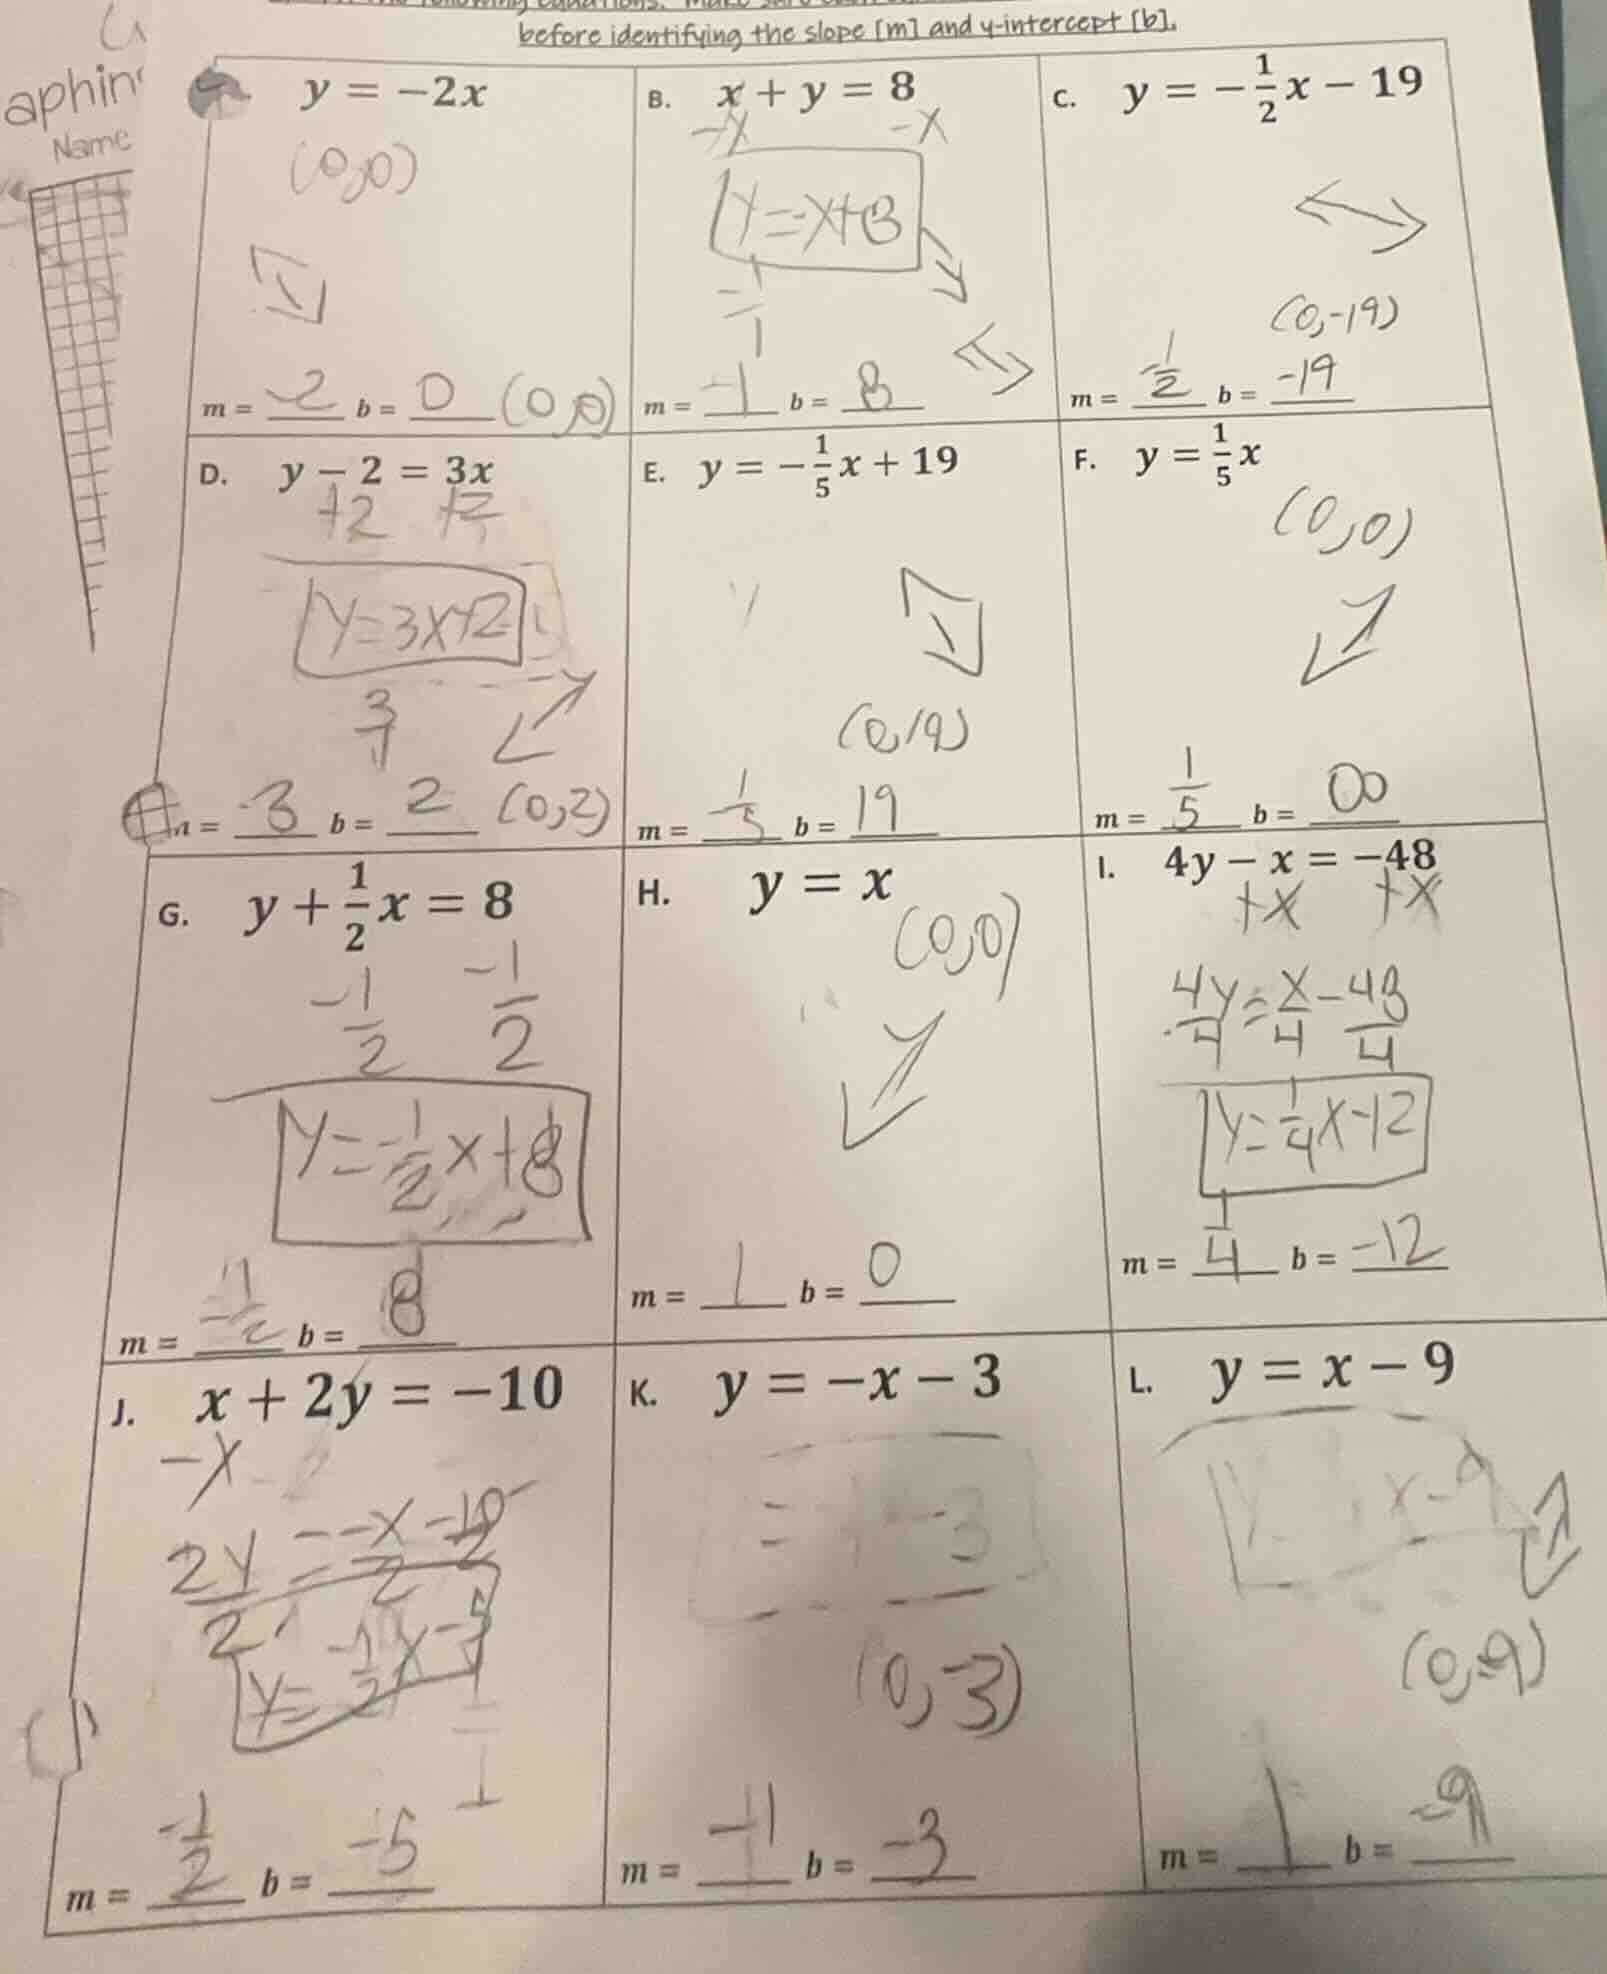 before identifying the slope [m] and y-intercept [b].
aphin
Name
y = −2x
(0,0)
m = -2 b = 0 (0,0)
B. x + y = 8
-x -x
y=-x+8
-1
1
m = -1 b = 8
C. y = −1/2x − 19
(0,-19)
m = -1/2 b = -19
D. y − 2 = 3x
+2 +2
y=3x+2
3
1
= 3 b = 2 (0,2)
E. y = −1/5x + 19
(0,19)
m = -1/5 b = 19
F. y = 1/5x
(0,0)
m = 1/5 b = 00
G. y + 1/2x = 8
-1/2 -1/2
y=-1/2x+8
m = -1/2 b = 8
H. y = x
(0,0)
m = 1 b = 0
I. 4y − x = −48
+x +x
4y/4 = x/4 - 48/4
y=1/4x-12
m = 1/4 b = -12
J. x + 2y = −10
-x
2y/2 = -x/2 -10/2
y= -1/2x-5
m = -1/2 b = -5
K. y = −x − 3
= -3
(0,-3)
m = -1 b = -3
L. y = x − 9
y x-9
(0,-9)
m = 1 b = -9